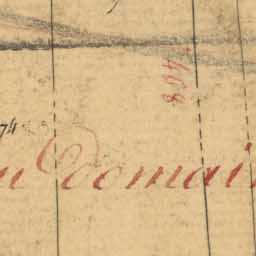 408
74
u domai